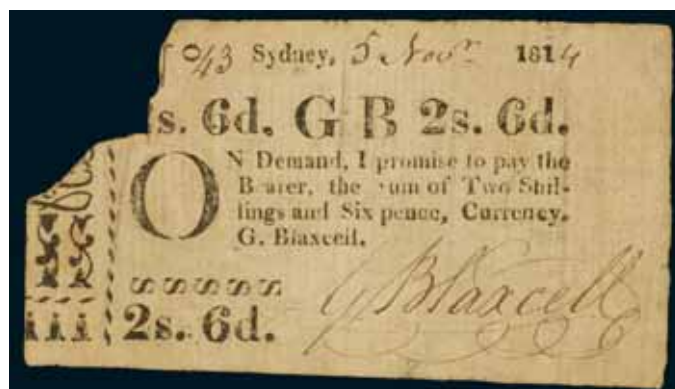 No 43 Sydney, 5 Novr. 1814
s. 6d. G B 2s. 6d.
ON Demand, I promise to pay the
Bearer, the sum of Two Shil-
lings and Six pence, Currency.
G. Blaxcell.
2s. 6d.
G Blaxcell